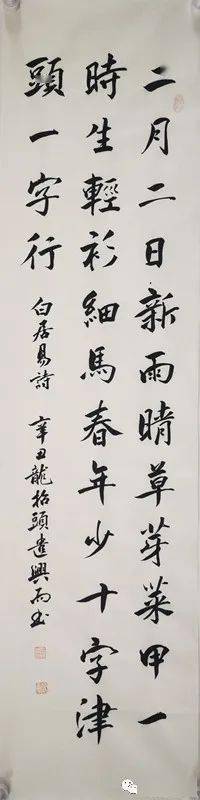 二月二日新雨晴草芽菜甲一
時生輕衫細馬春年少十字津
頭一字行 白居易詩 辛丑龍抬頭遣興